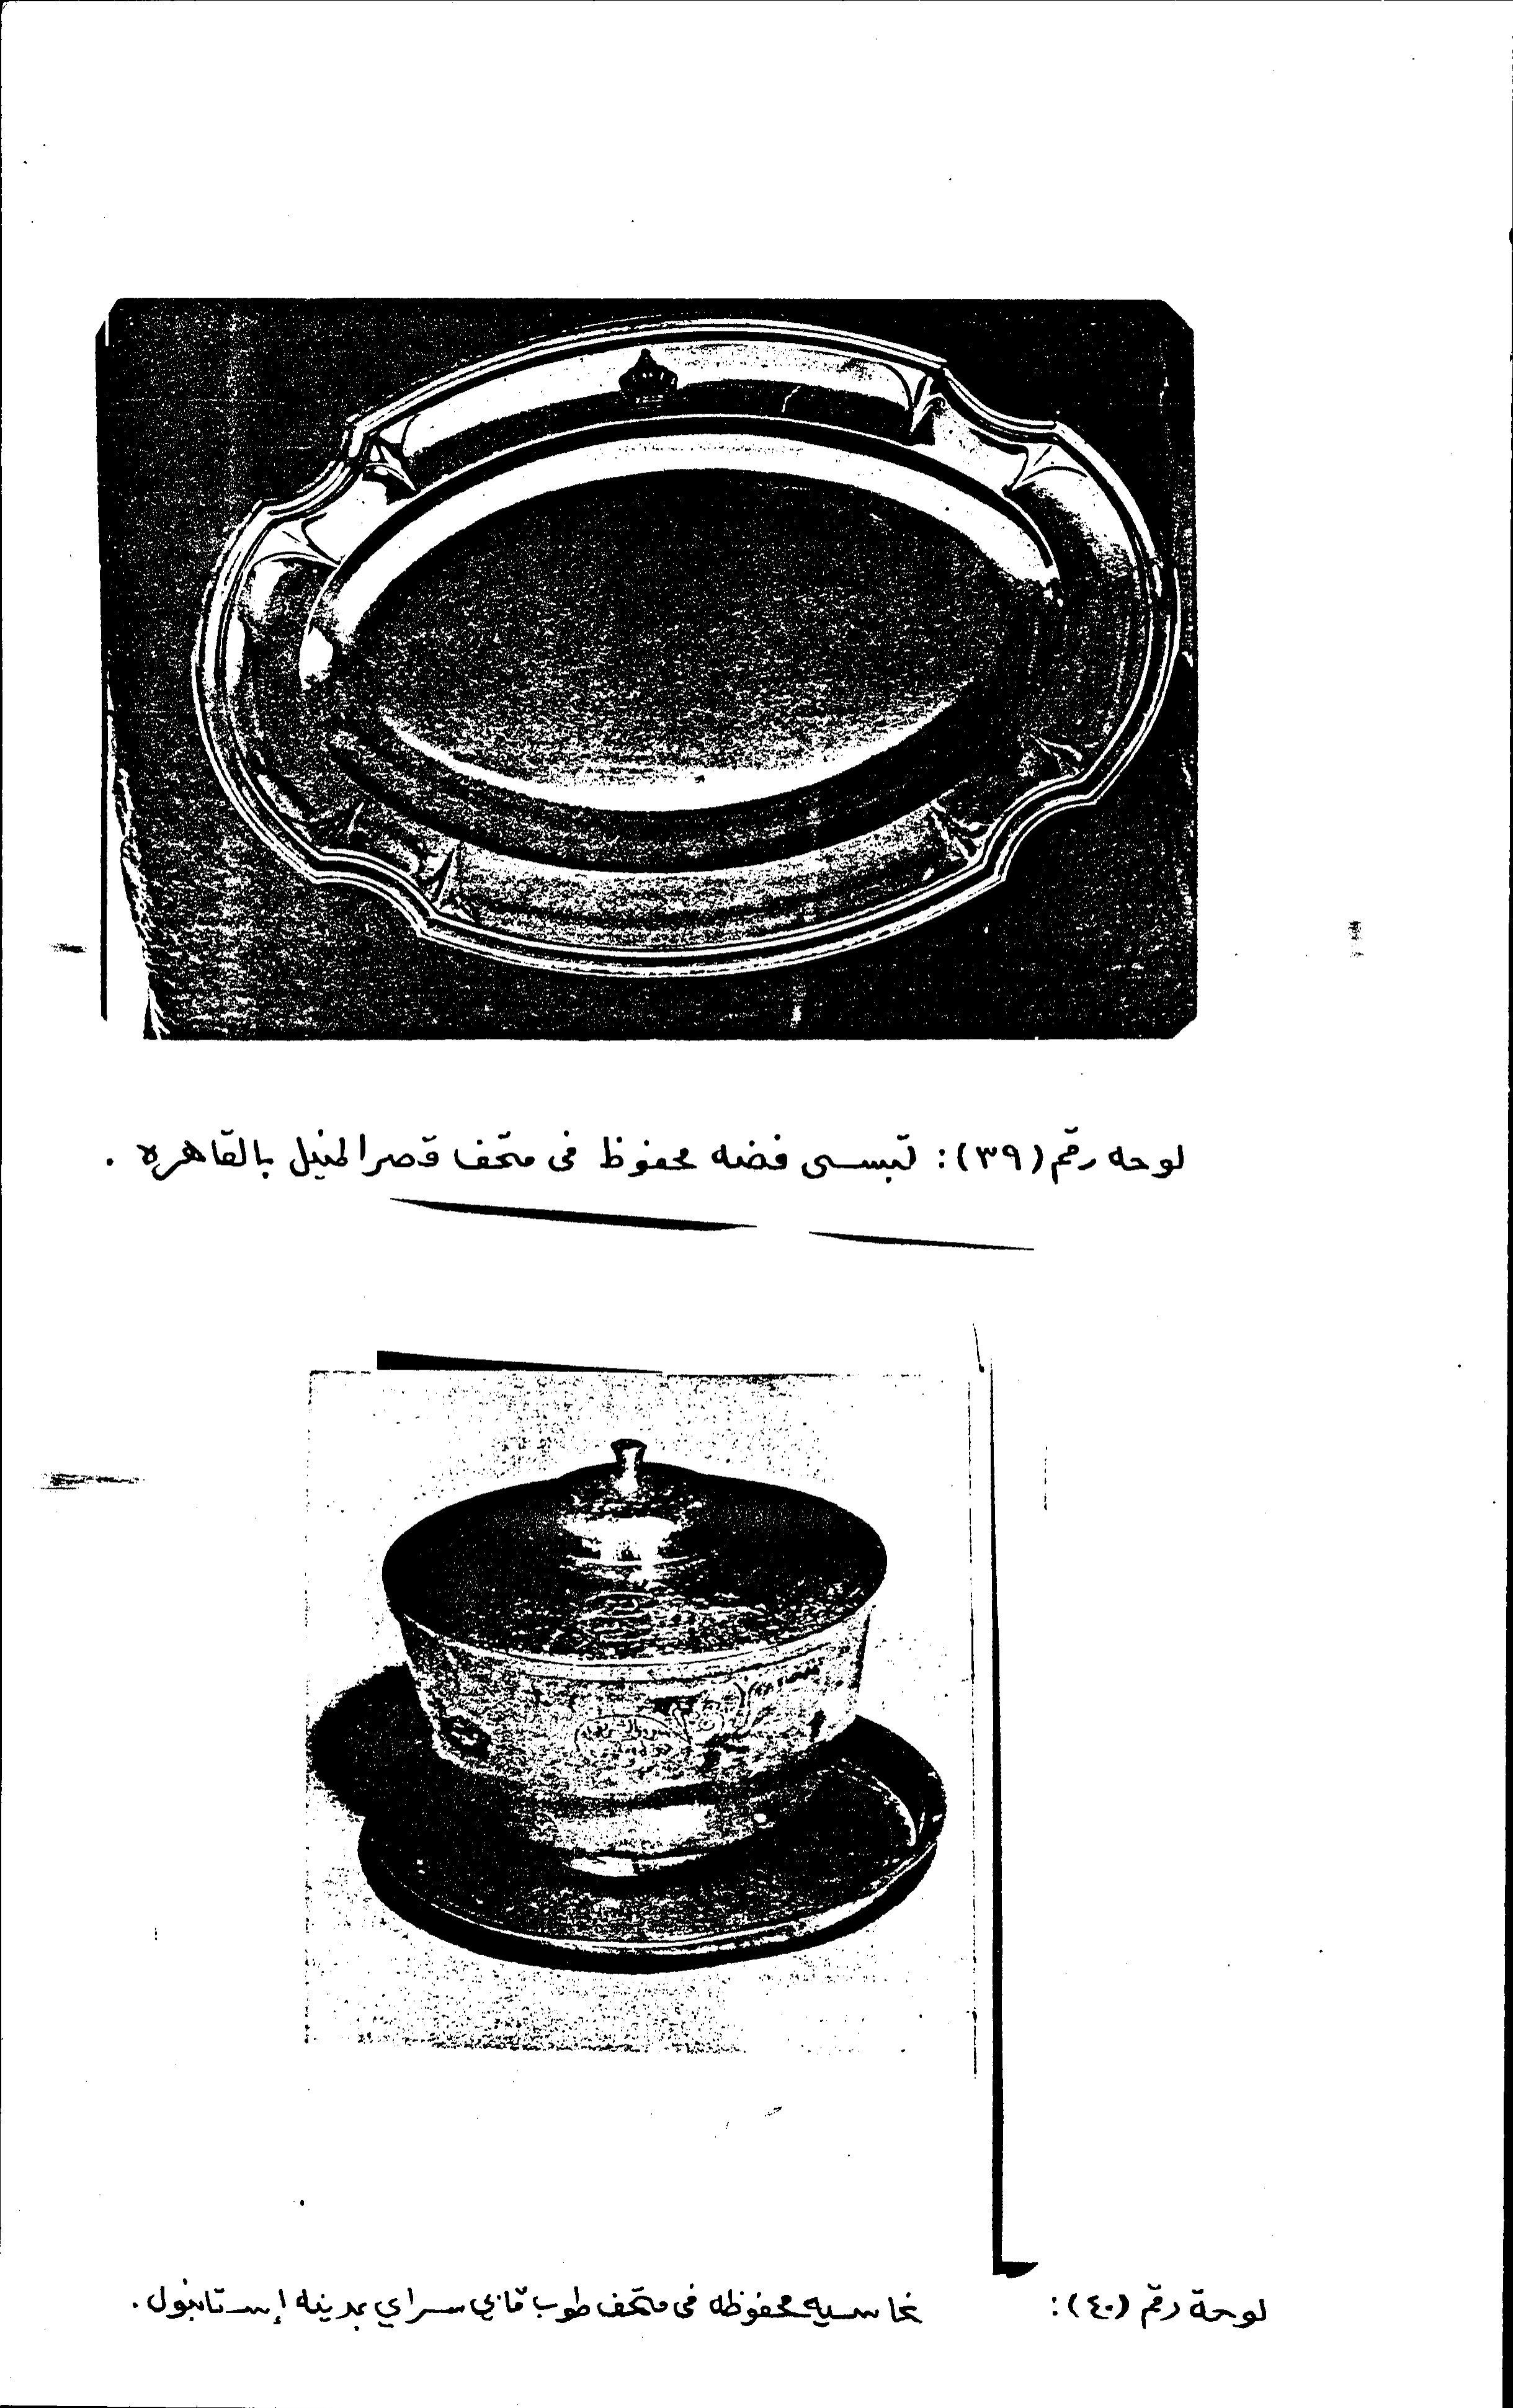 لوحه رقم (٣٩): تبسى فضه محفوظ فى متحف قصر المنيل بالقاهره .
لوحة رقم (٤٠): نحاسيه محفوظه فى متحف طوب قابي سراي بمدينه إستانبول.